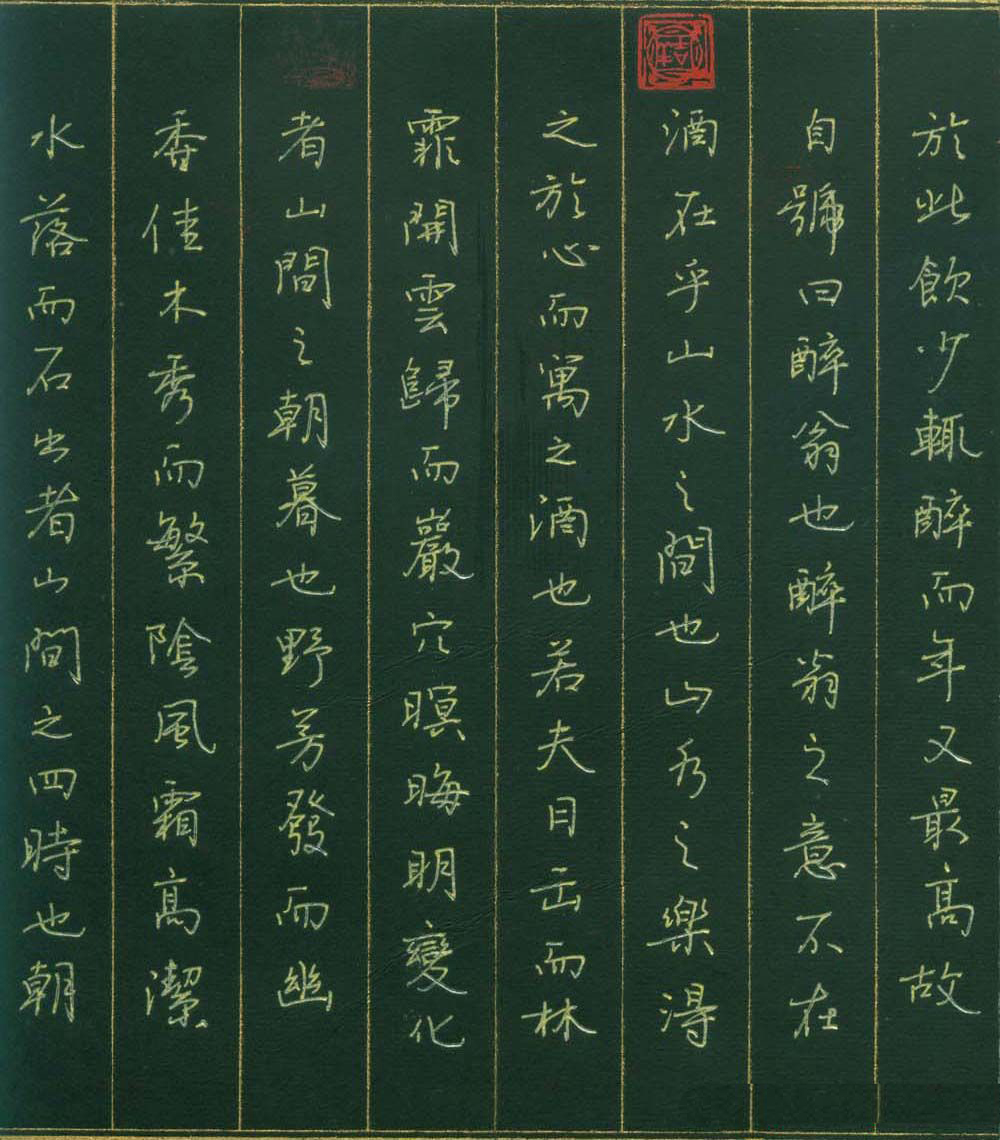 於此飲少輒醉而年又最高故
自號曰醉翁也醉翁之意不在
酒在乎山水之間也山水之樂得
之於心而寓之酒也若夫日出而林
霏開雲歸而巖穴暝晦明變化
者山間之朝暮也野芳發而幽
香佳木秀而繁陰風霜高潔
水落而石出者山間之四時也朝